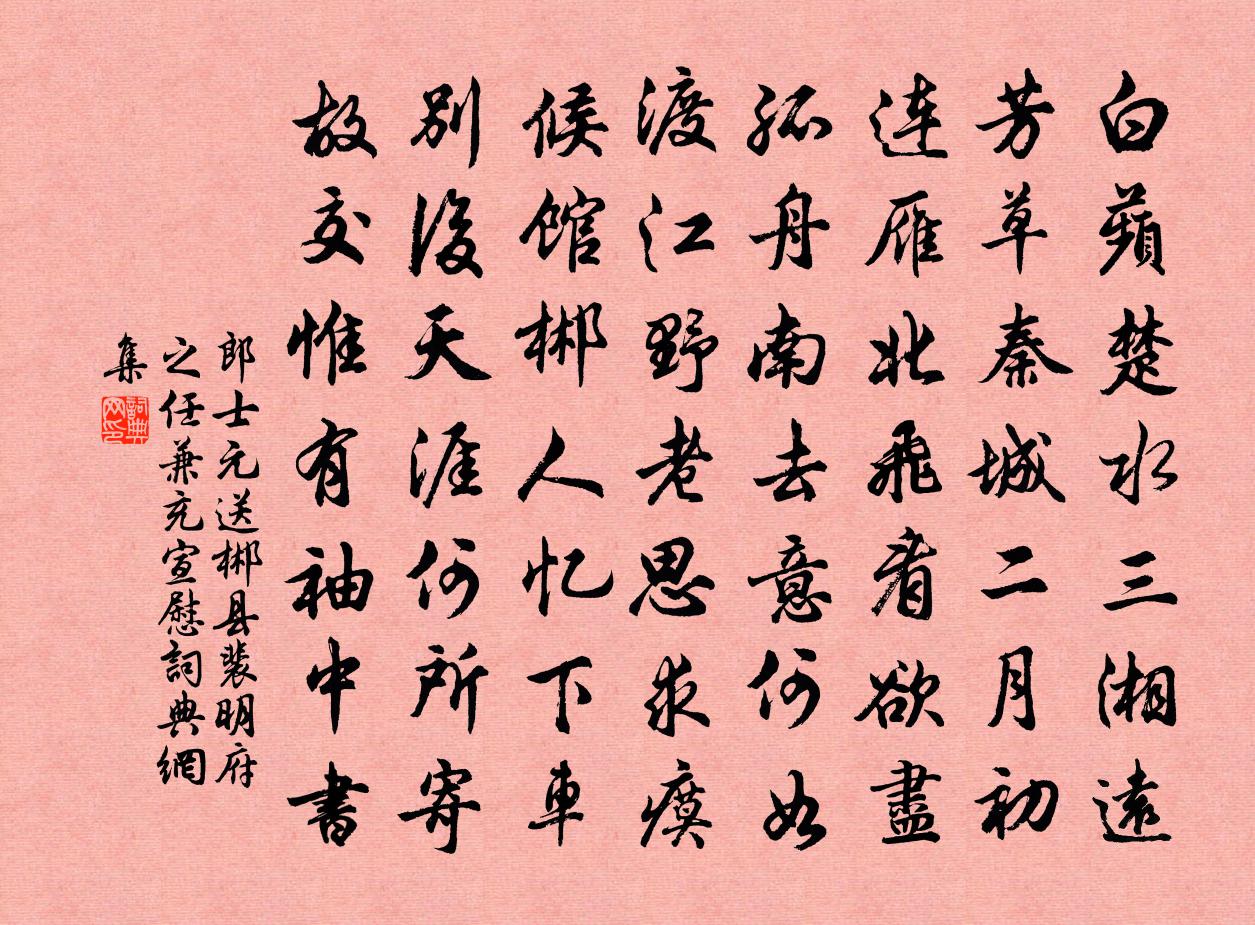 白蘋楚水三湘遠
芳草秦城二月初
连雁北飛看欲盡
孤舟南去意何如
渡江野老思求瘼
候馆郴人忆下車
別後天涯何所寄
故交惟有袖中書
郎士元送郴县裴明府
之任兼充宣慰詞典網
集
詞典网印